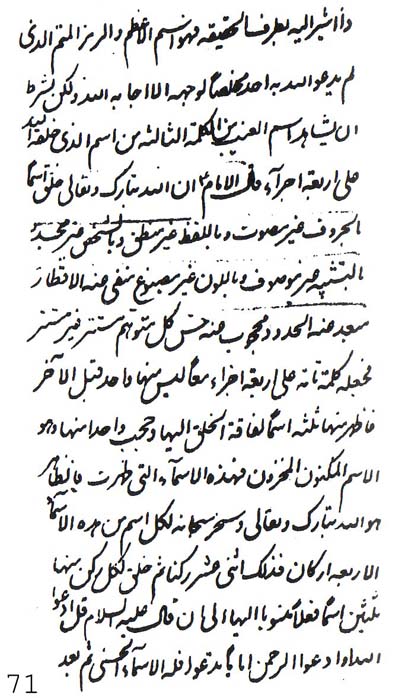 دا اشير اليه بطرف الحقيقه فهو اسم الاعظم و الرمز المنمنم الذي
لم يدعو الله به احد مخلصا لوجهه الا اجابه الله ولكن بشرط
ان يشاهد اسم الغيب من الكلمة الثالثه من اسم الذي خلقه الله
على اربعة اجزآء قال الامام ان الله تبارك و تعالى خلق اسما
بالحروف غير مصوت و باللفظ غير منطق و بالشخص غير مجسد
بالتشبيه غير موصوف و باللون غير مصبوغ منفى عنه الاقطار
مبعد عنه الحدود محجوب عنه حس كل متوهم مستتر غير مستتر
فجعله كلمة تامة على اربعة اجزاء معا ليس منها واحد قبل الآخر
فاظهر منها ثلثه اسما لفاقة الخلق اليها و حجب واحدا منها و هو
الاسم المكنون المخزون فهذه الاسمآء التى ظهرت فالظاهر
هو الله تبارك و تعالى و سخر سبحانه لكل اسم من هذه الاسمآء
الاربعه اركان فذلك اثنى عشر ركنا ثم خلق لكل ركن منها
ثلثين اسما فعلا منسوبا اليها الى ان قال عليه السلام قل ادعوا
الله او ادعوا الرحمن ايا ما تدعوا فله الاسمآء الحسنى ثم بعد
71